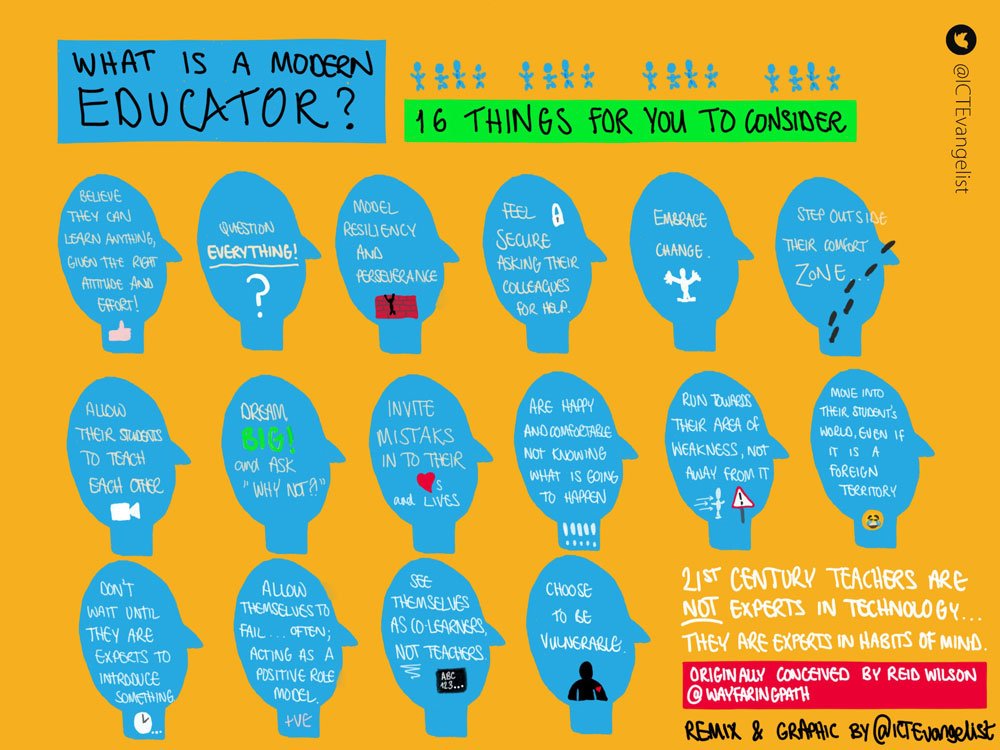 WHAT IS A MODERN
EDUCATOR?
16 THINGS FOR YOU TO CONSIDER
@ICTEvangelist
BELIEVE
THEY CAN
LEARN ANYTHING,
GIVEN THE RIGHT
ATTITUDE AND
EFFORT!
QUESTION
EVERYTHING!
?
MODEL
RESILIENCY
AND
PERSEVERANCE
FEEL
SECURE
ASKING THEIR
COLLEAGUES
FOR HELP.
EMBRACE
CHANGE.
STEP OUTSIDE
THEIR COMFORT
ZONE...
ALLOW
THEIR STUDENTS
TO TEACH
EACH OTHER
DREAM
BIG!
and ASK
"WHY NOT?"
INVITE
MISTAKS
IN TO THEIR
s
and LIVES
ARE HAPPY
AND COMFORTABLE
NOT KNOWING
WHAT IS GOING
TO HAPPEN
!!!!!!
RUN TOWARDS
THEIR AREA OF
WEAKNESS, NOT
AWAY FROM IT
!
MOVE INTO
THEIR STUDENT'S
WORLD, EVEN IF
IT IS A
FOREIGN
TERRITORY
DON'T
WAIT UNTIL
THEY ARE
EXPERTS TO
INTRODUCE
SOMETHING.
ALLOW
THEMSELVES TO
FAIL... OFTEN;
ACTING AS A
POSITIVE ROLE
MODEL.
+VE
SEE
THEMSELVES
AS CO-LEARNERS,
NOT TEACHERS.
ABC
123...
CHOOSE
TO BE
VULNERABLE.
21ST CENTURY TEACHERS ARE
NOT EXPERTS IN TECHNOLOGY...
THEY ARE EXPERTS IN HABITS OF MIND.
ORIGINALLY CONCEIVED BY REID WILSON
@WAYFARINGPATH
REMIX & GRAPHIC BY @ICTEvangelist